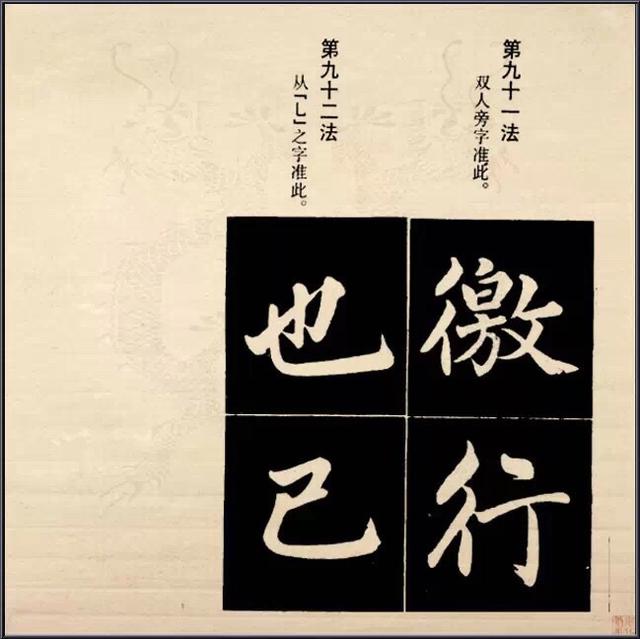 第九十一法
双人旁字准此。
徼行
第九十二法
从「乚」之字准此。
也已